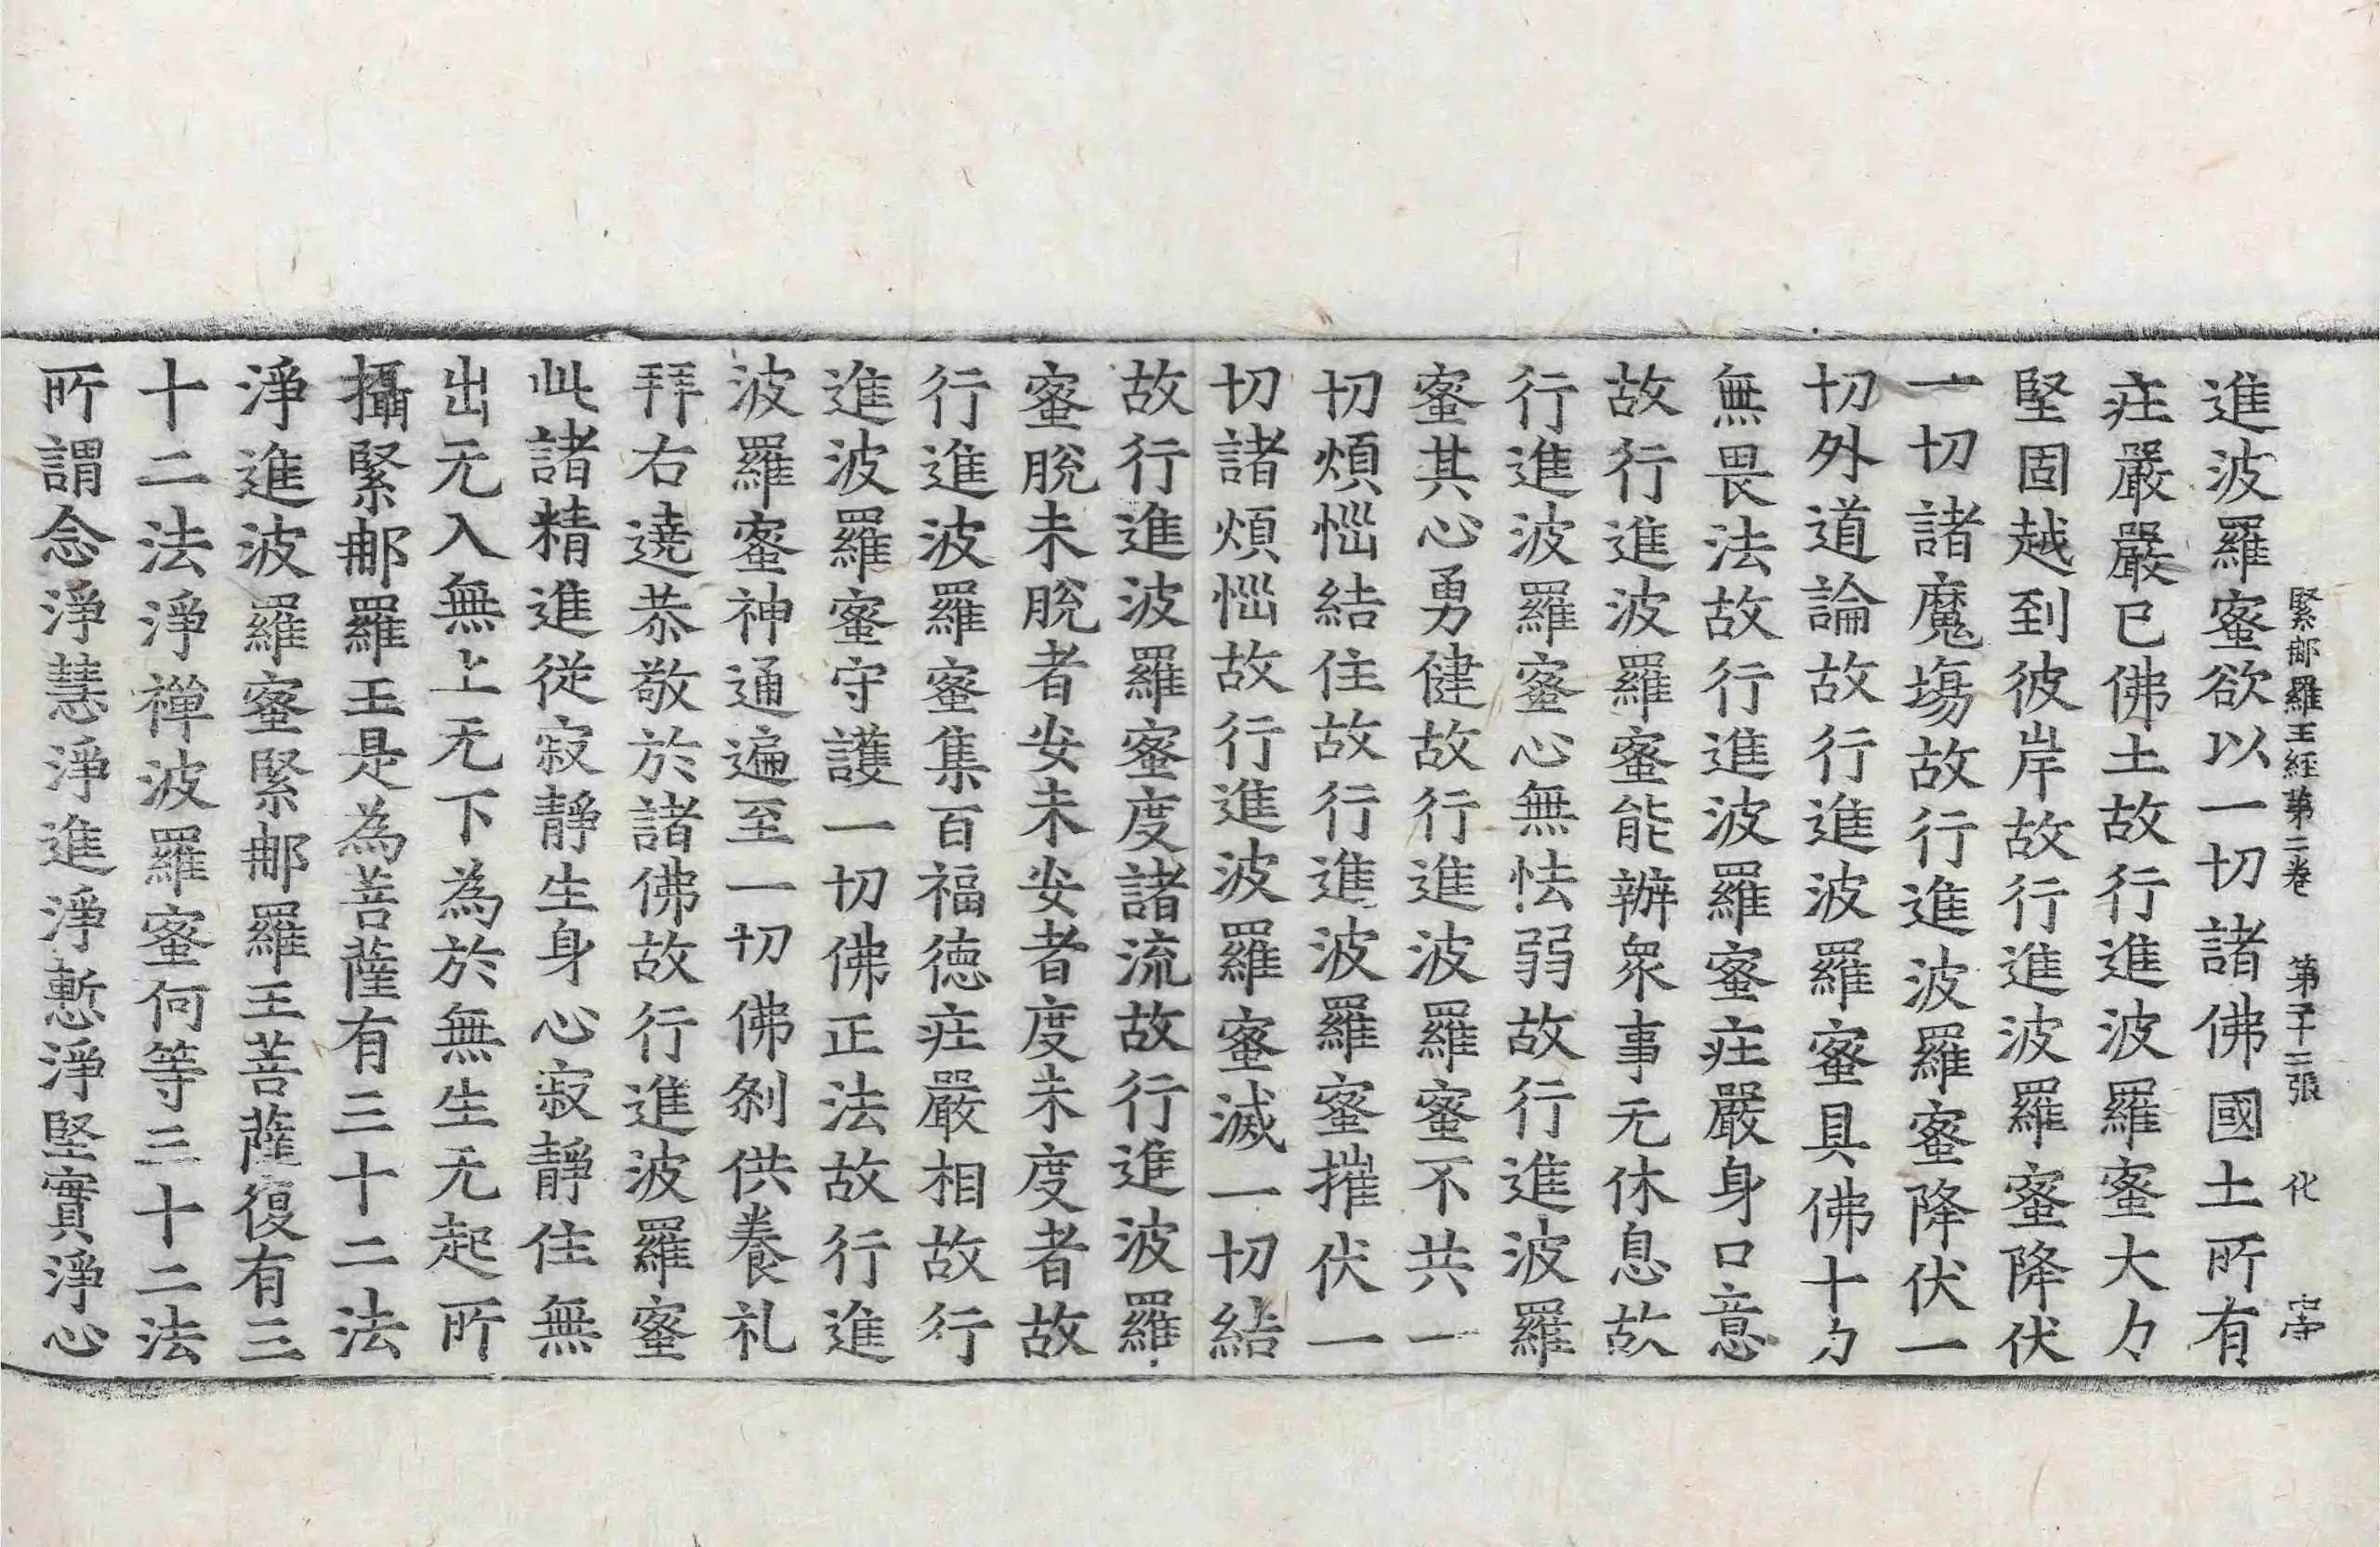 緊𨙻羅王經第二卷　第子十三張　化　𡨴
進波羅蜜欲以一切諸佛國土所有
疘嚴嚴已佛土故行進波羅蜜大力
堅固越到彼岸故行進波羅蜜降伏
一切諸魔塲故行進波羅蜜降伏一
切外道論故行進波羅蜜具佛十力
無畏法故行進波羅蜜疘嚴身口意
故行進波羅蜜能辦衆事无休息故
行進波羅蜜心無怯弱故行進波羅
蜜其心勇健故行進波羅蜜不共一
切煩惱結住故行進波羅蜜摧伏一
切諸煩惱故行進波羅蜜滅一切結
故行進波羅蜜度諸流故行進波羅
蜜脫未脫者安未安者度未度者故
行進波羅蜜集百福德疘嚴相故行
進波羅蜜守護一切佛正法故行進
波羅蜜神通遍至一切佛刹供養礼
拜右遶恭敬於諸佛故行進波羅蜜
此諸精進從寂靜生身心寂靜住無
出无入無上无下為於無生无起所
攝緊𨙻羅王是為菩薩有三十二法
淨進波羅蜜緊𨙻羅王菩薩復有三
十二法淨禪波羅蜜何等三十二法
所謂念淨慧淨進淨慙淨堅實淨心